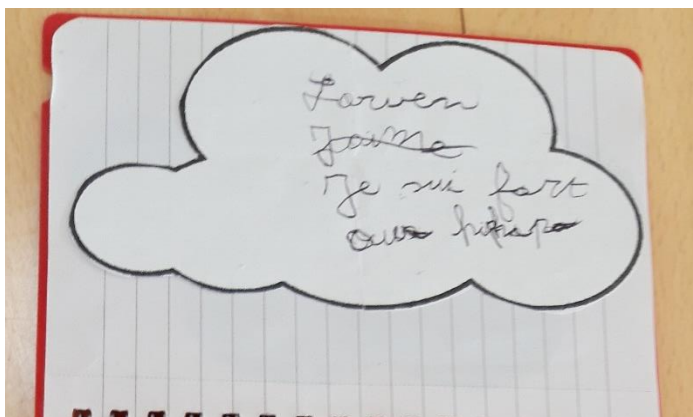 Lorwen
J'aime
Je sui fort
au hiphop